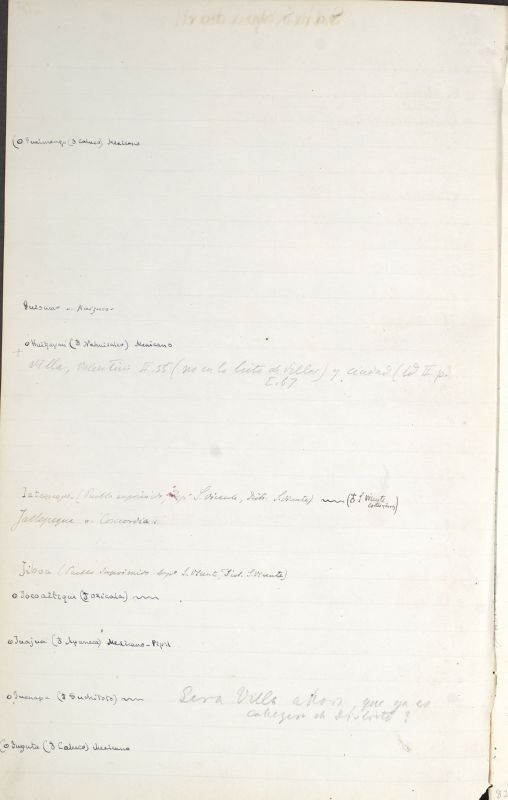 (o Guaimango (J Caluco) Mexicano
o Huizapan (J Nahuizalco) Mexicano
+
Villa, Valentini II.55 (no en la lista de Villas) y ciudad (
I.67
Iztepeque (Pueblo suprimido, Dept S. Vicente, Distr. S. Vicente) (J S. Vicente
Jaltepeque v. Concordia.
Jiboa (Pueblo suprimido Dept S. Vicente, Dist. S. Vicente)
o Jocoaitique (J Ozicala)
o Juajua (J Apaneca) Mexicano-Pipil
o Jucuapa (J Suchitoto)
Sera Villa ahora, que ya es
cabecera de Distrito?
(o Juguta (J Caluco) Mexicano
82